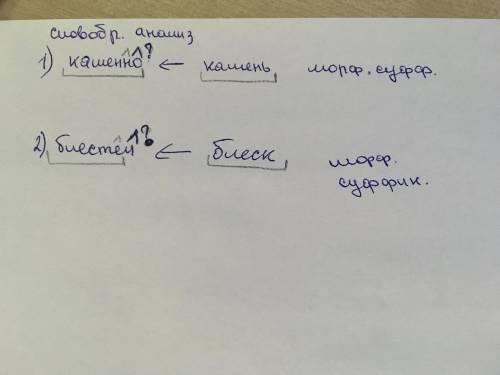 словобр. анализ
1) каменно? ← камень морф. суфф.
2) блестеи? ← блеск морф.
суффик.